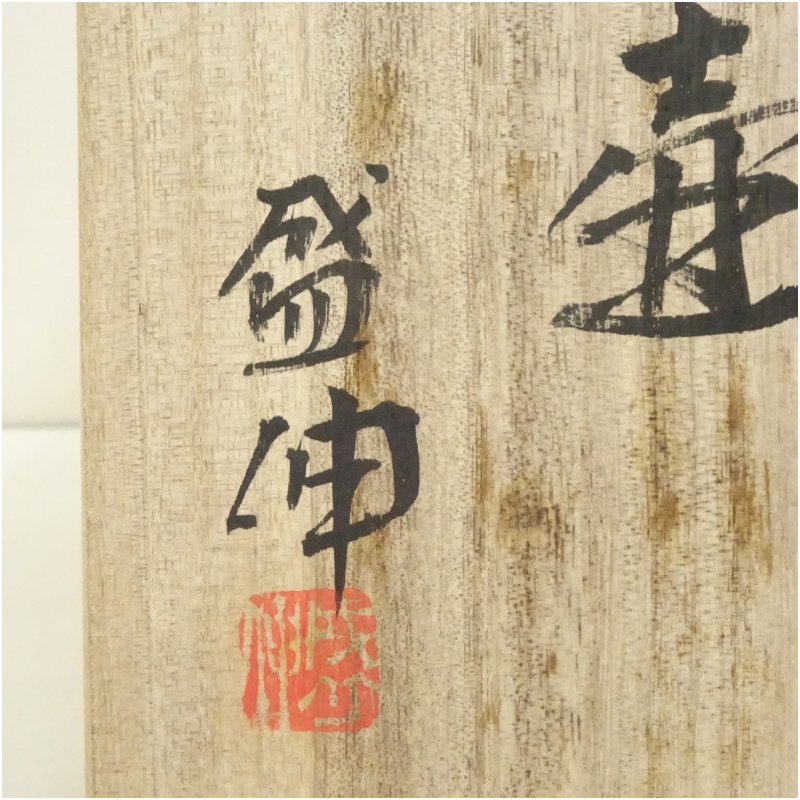 壷
盛伸